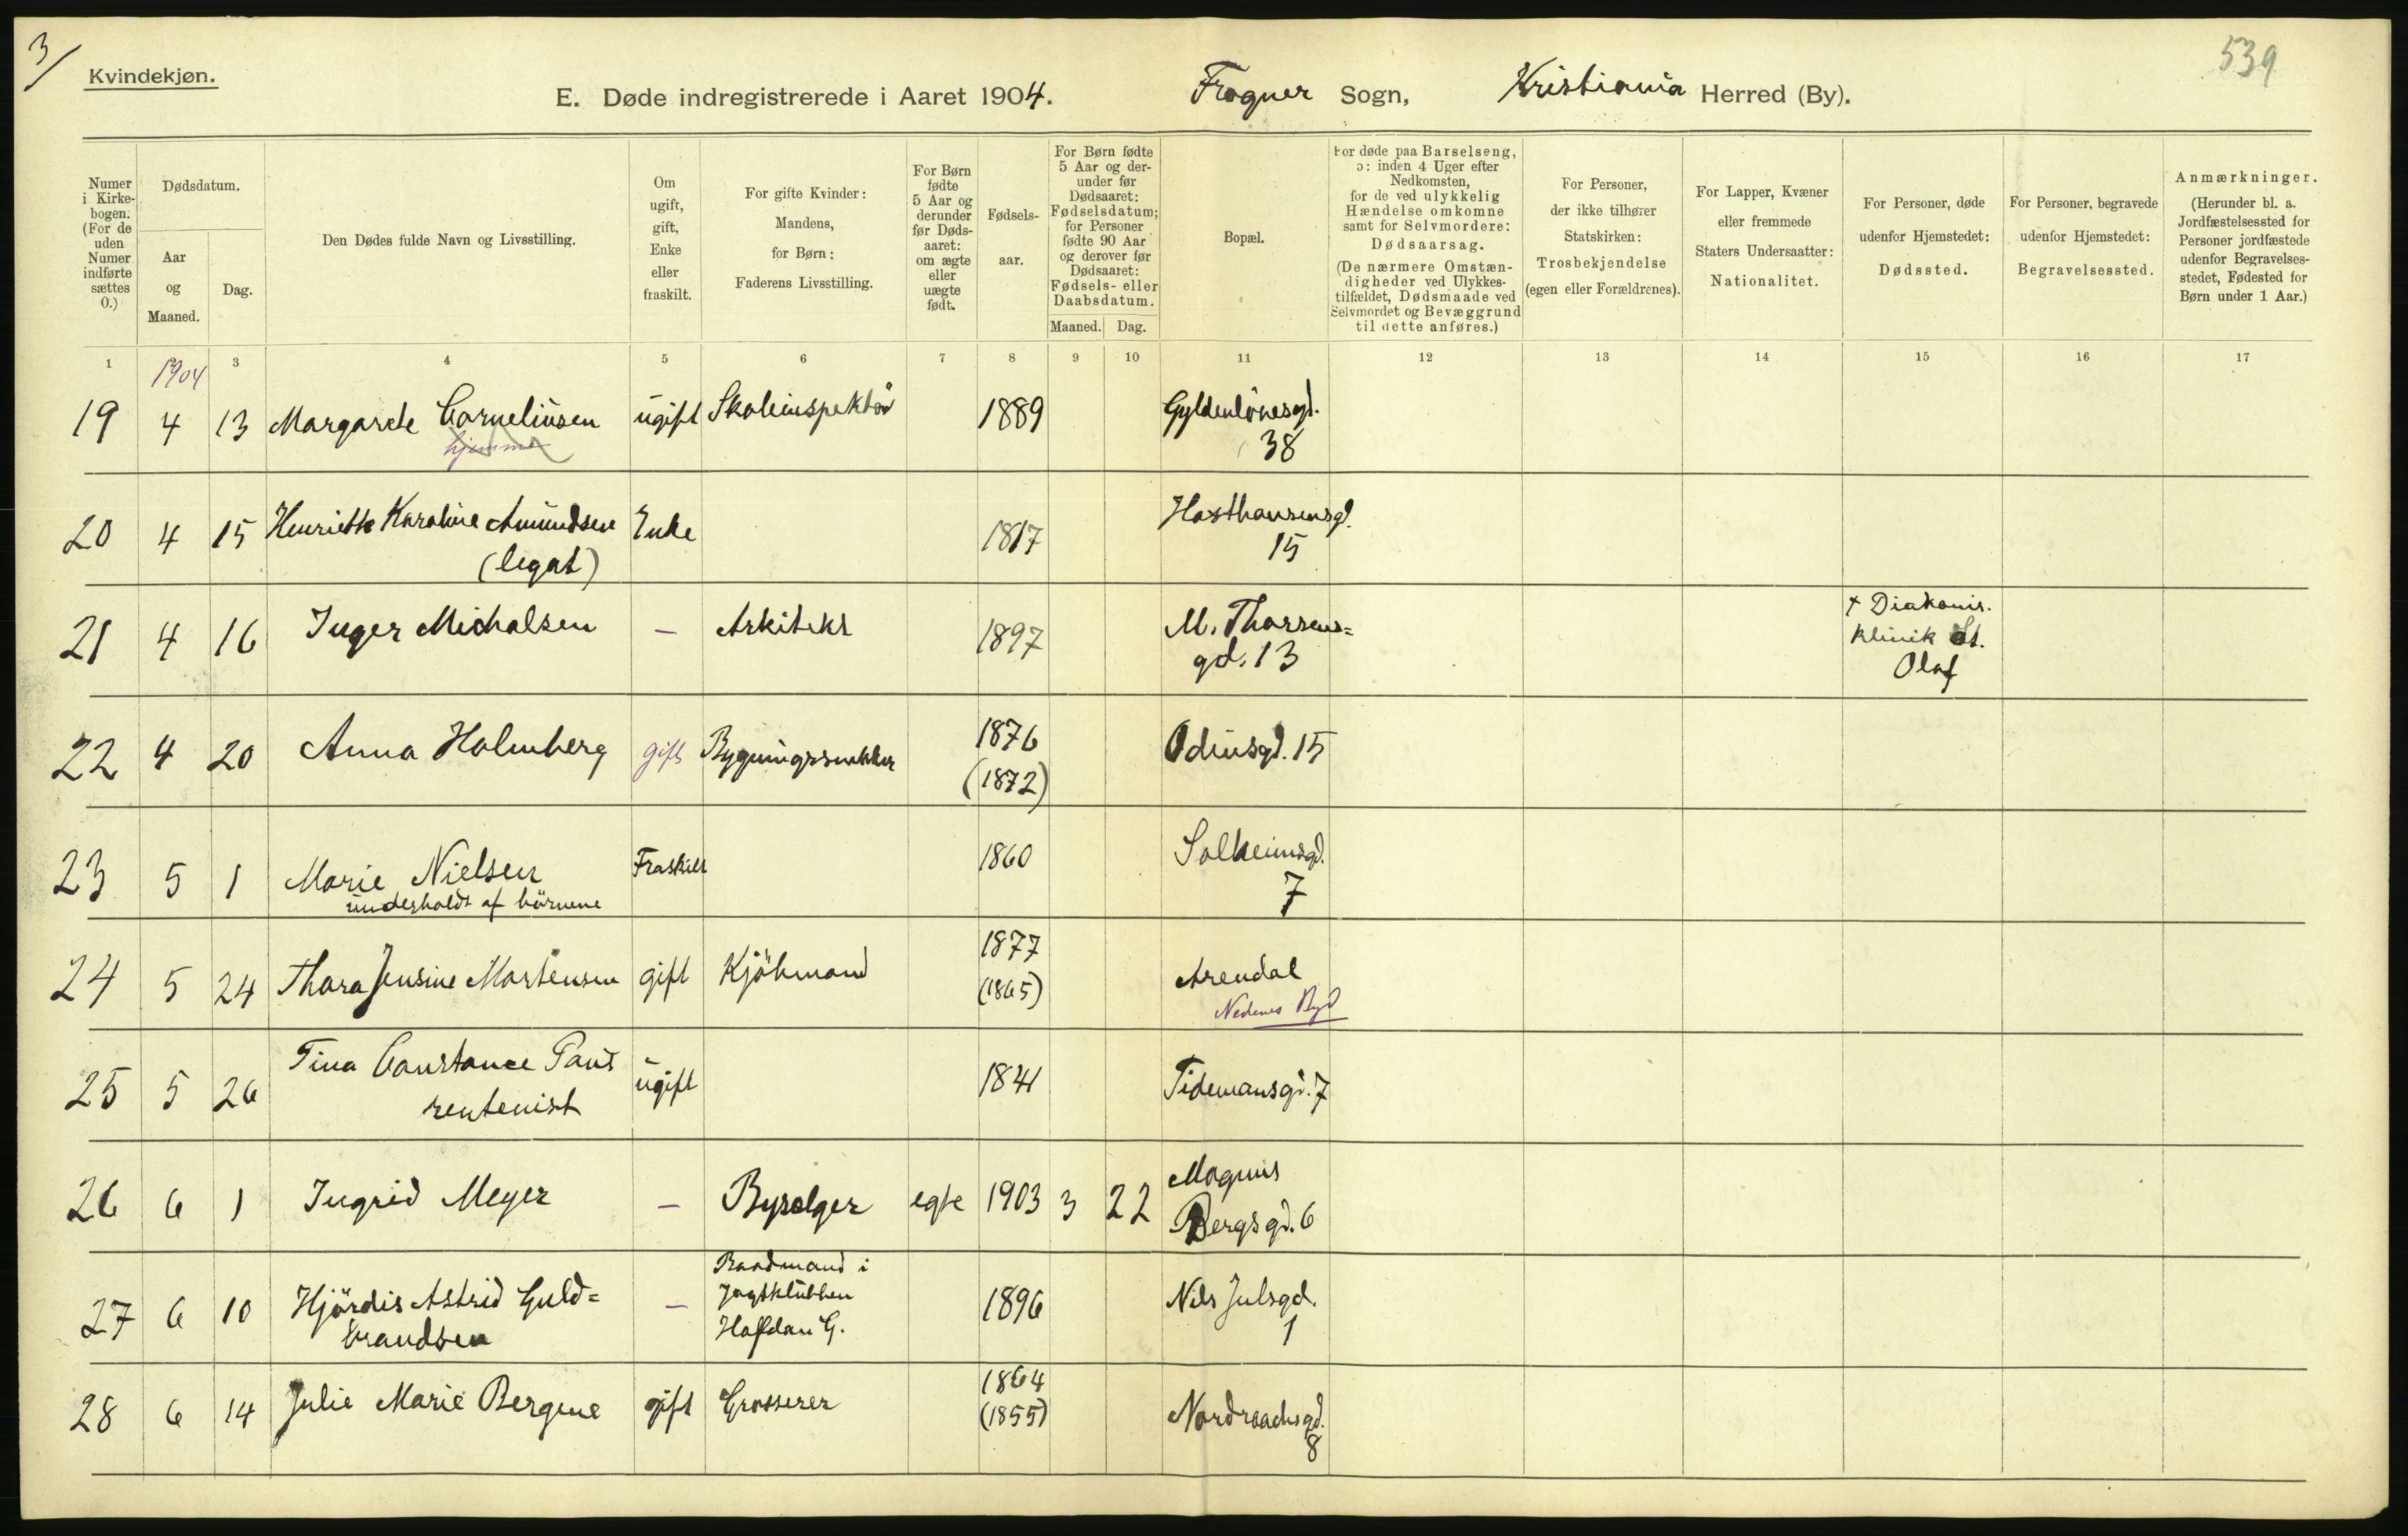 3/
Kvindekjøn.
539
E. Døde indregistrerede i Aaret 1904. Frogner Sogn, Kristiania Herred (By).
Numer i Kirkebogen. (For de uden Numer indførte sættes 0.)
Dødsdatum.
Aar og Maaned.
Dag.
Den Dødes fulde Navn og Livsstilling.
Om ugift, gift, Enke eller fraskilt.
For gifte Kvinder: Mandens, for Børn: Faderens Livsstilling.
For Børn fødte 5 Aar og derunder før Dødsaaret: om ægte eller uægte født.
Fødselsaar.
For Børn fødte 5 Aar og derunder før Dødsaaret: Fødselsdatum; for Personer fødte 90 Aar og derover før Dødsaaret: Fødsels- eller Daabsdatum.
Maaned. Dag.
Bopæl.
For døde paa Barselseng, ɔ: inden 4 Uger efter Nedkomsten, for de ved ulykkelig Hændelse omkomne samt for Selvmordere: Dødsaarsag. (De nærmere Omstændigheder ved Ulykkestilfældet, Dødsmaade ved Selvmordet og Bevæggrund til dette anføres.)
For Personer, der ikke tilhører Statskirken: Trosbekjendelse (egen eller Forældrenes).
For Lapper, Kvæner eller fremmede Staters Undersaatter: Nationalitet.
For Personer, døde udenfor Hjemstedet: Dødssted.
For Personer, begravede udenfor Hjemstedet: Begravelsessted.
Anmærkninger. (Herunder bl. a. Jordfæstelsessted for Personer jordfæstede udenfor Begravelsesstedet, Fødested for Børn under 1 Aar.)
1 3 4 5 6 7 8 9 10 11 12 13 14 15 16 17
1904
19 4 13 Margarete Corneliusen ugift Skoleinspektör 1889 Gyldenlövesgd.
hjemme 38
20 4 15 Henriette Karoline Amundsen Enke 1817 Hasthausensgd.
(legat) 15
21 4 16 Inger Michalsen — Arkitekt 1897 M. Thorsens=
gd. 13
+ Diakonis.
klinik St.
Olaf
22 4 20 Anna Holmberg gift Bygningssnekker 1876
(1872) Odinsgd. 15
23 5 1 Marie Nielsen Fraskilt 1860 Solheimsgd.
underholdt af börnene 7
24 5 24 Thora Jensine Mortensen gift Kjöbmand 1877
(1865) Arendal
Nedenes
25 5 26 Tina Constance Paus ugift 1841 Tidemansgd. 7
rentenist
26 6 1 Ingrid Meyer — Byselger egte 1903 3 22 Magnus
Bergsgd. 6
27 6 10 Hjördis Astrid Guld= — Baadmand i
Jagtklubben
Halfdan G. 1896 Nils Julsgd.
brandsen 1
28 6 14 Julie Marie Bergene gift Grosserer 1864
(1855) Nordraachsgd.
8